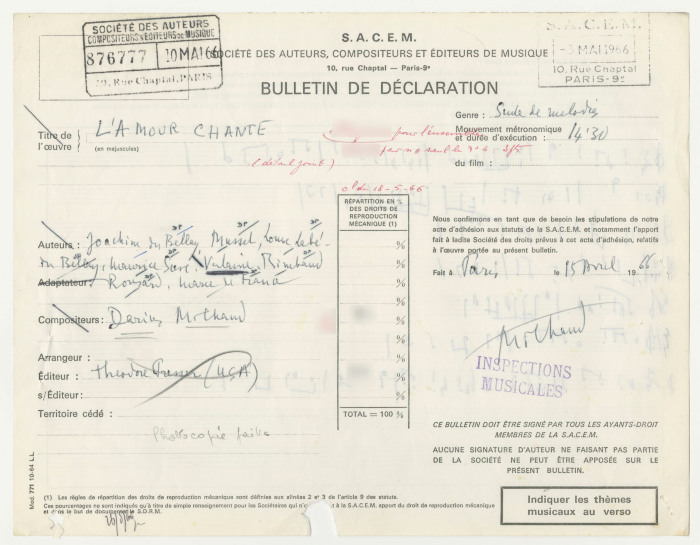 SOCIÉTÉ DES AUTEURS
COMPOSITEURS & ÉDITEURS DE MUSIQUE
876777 10 MAI 66
10, Rue Chaptal, PARIS
S.A.C.E.M.
SOCIÉTÉ DES AUTEURS, COMPOSITEURS ET ÉDITEURS DE MUSIQUE
10, rue Chaptal — Paris-9e
S.A.C.E.M.
-3 MAI 1966
10, Rue Chaptal
PARIS-9e
BULLETIN DE DÉCLARATION
Genre : Suite de mélodies
Titre de l'œuvre : L'AMOUR CHANTE
(en majuscules)
Mouvement métronomique
et durée d'exécution : 14'30
pour l'ensemble
(détail joint)
du film :
el du 18-5-66
RÉPARTITION EN %
DES DROITS DE
REPRODUCTION
MÉCANIQUE (1)
Nous confirmons en tant que de besoin les stipulations de notre
acte d'adhésion aux statuts de la S.A.C.E.M. et notamment l'apport
fait à ladite Société des droits prévus à cet acte d'adhésion, relatifs
à l'œuvre portée au présent bulletin.
Fait à Paris le 15 Avril 1966
Auteurs : Joachim du Bellay, Musset, Louise Labé
du Bellay, Maurice Scève, Verlaine, Rimbaud
Adaptateur : Ronsard, Marie de France
Compositeurs : Darius Milhaud
Milhaud
INSPECTIONS
MUSICALES
Arrangeur :
Éditeur : Théodore Presser (USA)
s/Éditeur :
Territoire cédé :
% % % % % % % % % %
TOTAL = 100 %
Photocopie faite
CE BULLETIN DOIT ÊTRE SIGNÉ PAR TOUS LES AYANTS-DROIT
MEMBRES DE LA S.A.C.E.M.
AUCUNE SIGNATURE D'AUTEUR NE FAISANT PAS PARTIE
DE LA SOCIÉTÉ NE PEUT ÊTRE APPOSÉE SUR LE
PRÉSENT BULLETIN.
Indiquer les thèmes
musicaux au verso
Mod. 771 10-64 L L
(1) Les règles de répartition des droits de reproduction mécanique sont définies aux alinéas 2 et 3 de l'article 9 des statuts.
Ces pourcentages ne sont indiqués qu'à titre de simple renseignement pour les Sociétaires qui n'ont pas fait à la S.A.C.E.M. apport du droit de reproduction mécanique
et dans le but de documenter la S.D.R.M.